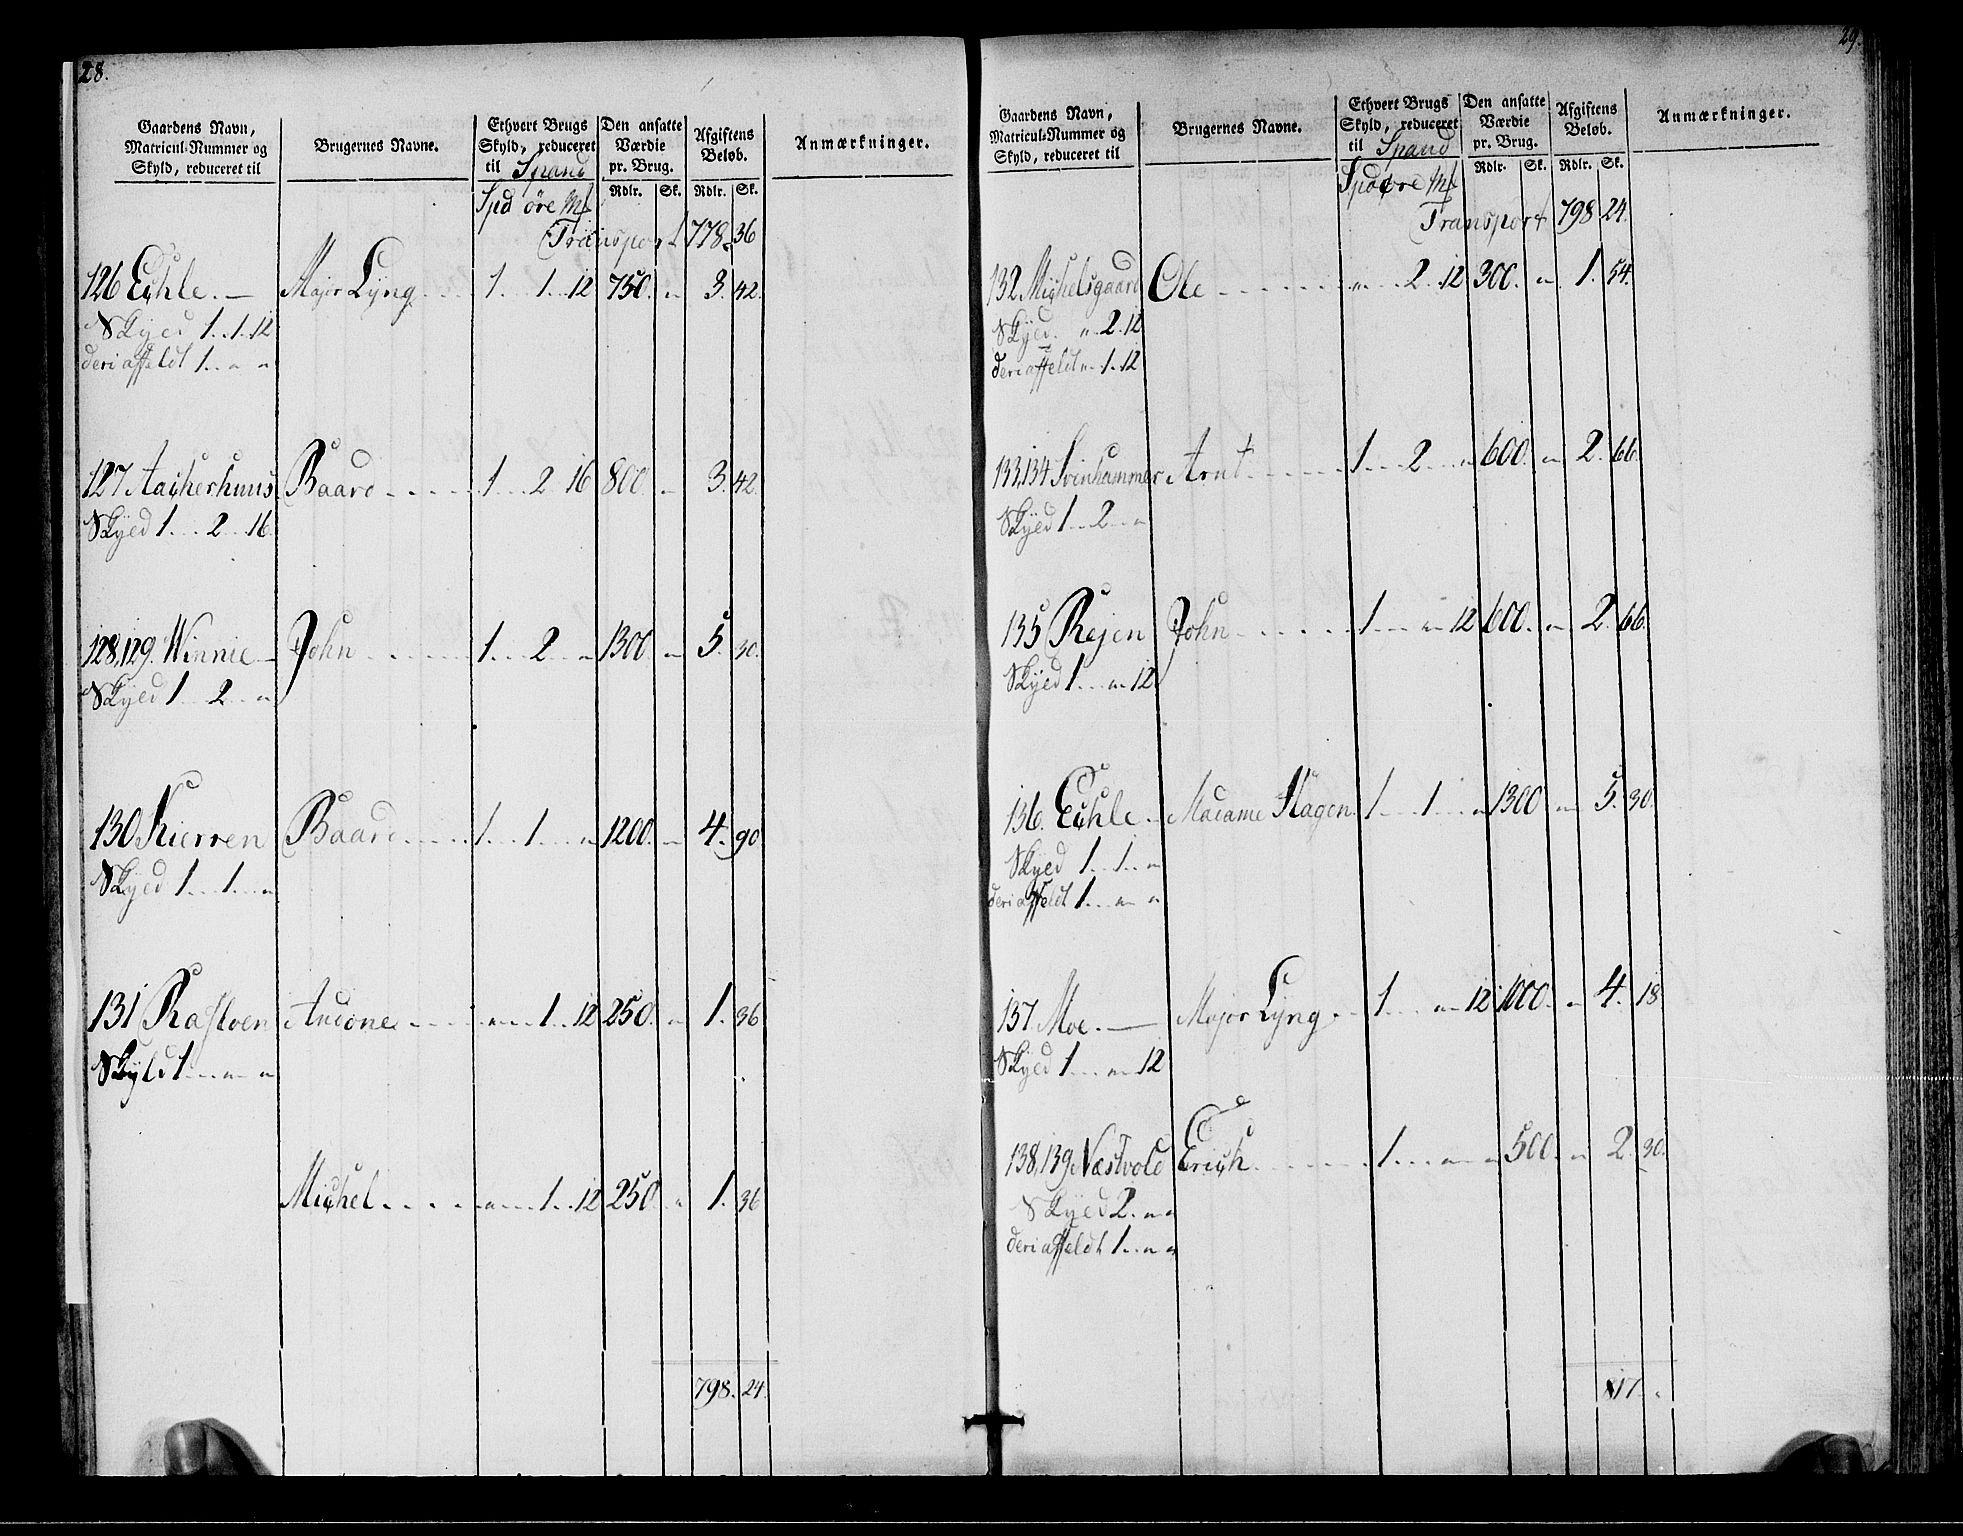 28.
Gaardens Navn, Matricul-Nummer og Skyld, reduceret til
Brugernes Navne.
Ethvert Brugs Skyld, reduceret til Spand
Den ansatte Værdie pr. Brug.
Afgiftens Beløb.
Anmærkninger.
Spd øre Ml
Rdlr. Sk. Rdlr. Sk.
Transport 778. 36
126 Echle. — Major Lyng 1 1 12 750. " 3. 42.
Skyed 1..1..12
deri affeldt 1.. " "
127 Aacherhuus Baard 1 2 16 800. " 3. 42.
Skyed 1...2...16.
128,129. Winnie John 1 2 " 1300. " 5. 30.
Skyed 1...2...„
130 Kierren Baard 1 1 " 1200. " 4. 90
Skyed 1...1...„
131 Rastven Andone 1 12 250. " 1. 36
Skyld 1 " "
Michel " 1 12 250 " 1. 36
798. 24.
29.
Gaardens Navn, Matricul-Nummer og Skyld, reduceret til
Brugernes Navne.
Ethvert Brugs Skyld, reduceret til Spand
Den ansatte Værdie pr. Brug.
Afgiftens Beløb.
Anmærkninger.
Spd øre Ml
Rdlr. Sk. Rdlr. Sk.
Transport 798 24.
132 Michelsgaard Ole " 2 12 300. " 1. 54.
Skyed. " 2. 12
deri affeldt " 1. 12
133,134 Svinhammer Arnt 1 2 " 600. " 2. 66.
Skyed 1...2...„
135 Rejen John 1 " 12 600. " 2. 66.
Skyed 1 " 12
136. Echle Madame Hagen 1 1 " 1300 " 5. 30.
Skyed 1..1..„
deri affeldt 1 " "
137 Moe. — Major Lyng 1 " 12 1000. " 4. 18
Skyed 1 " 12
138,139 Næstvold Erich 1 " " 500. " 2. 30.
Skyed 2. " "
deri affeldt 1.. " "
817. "